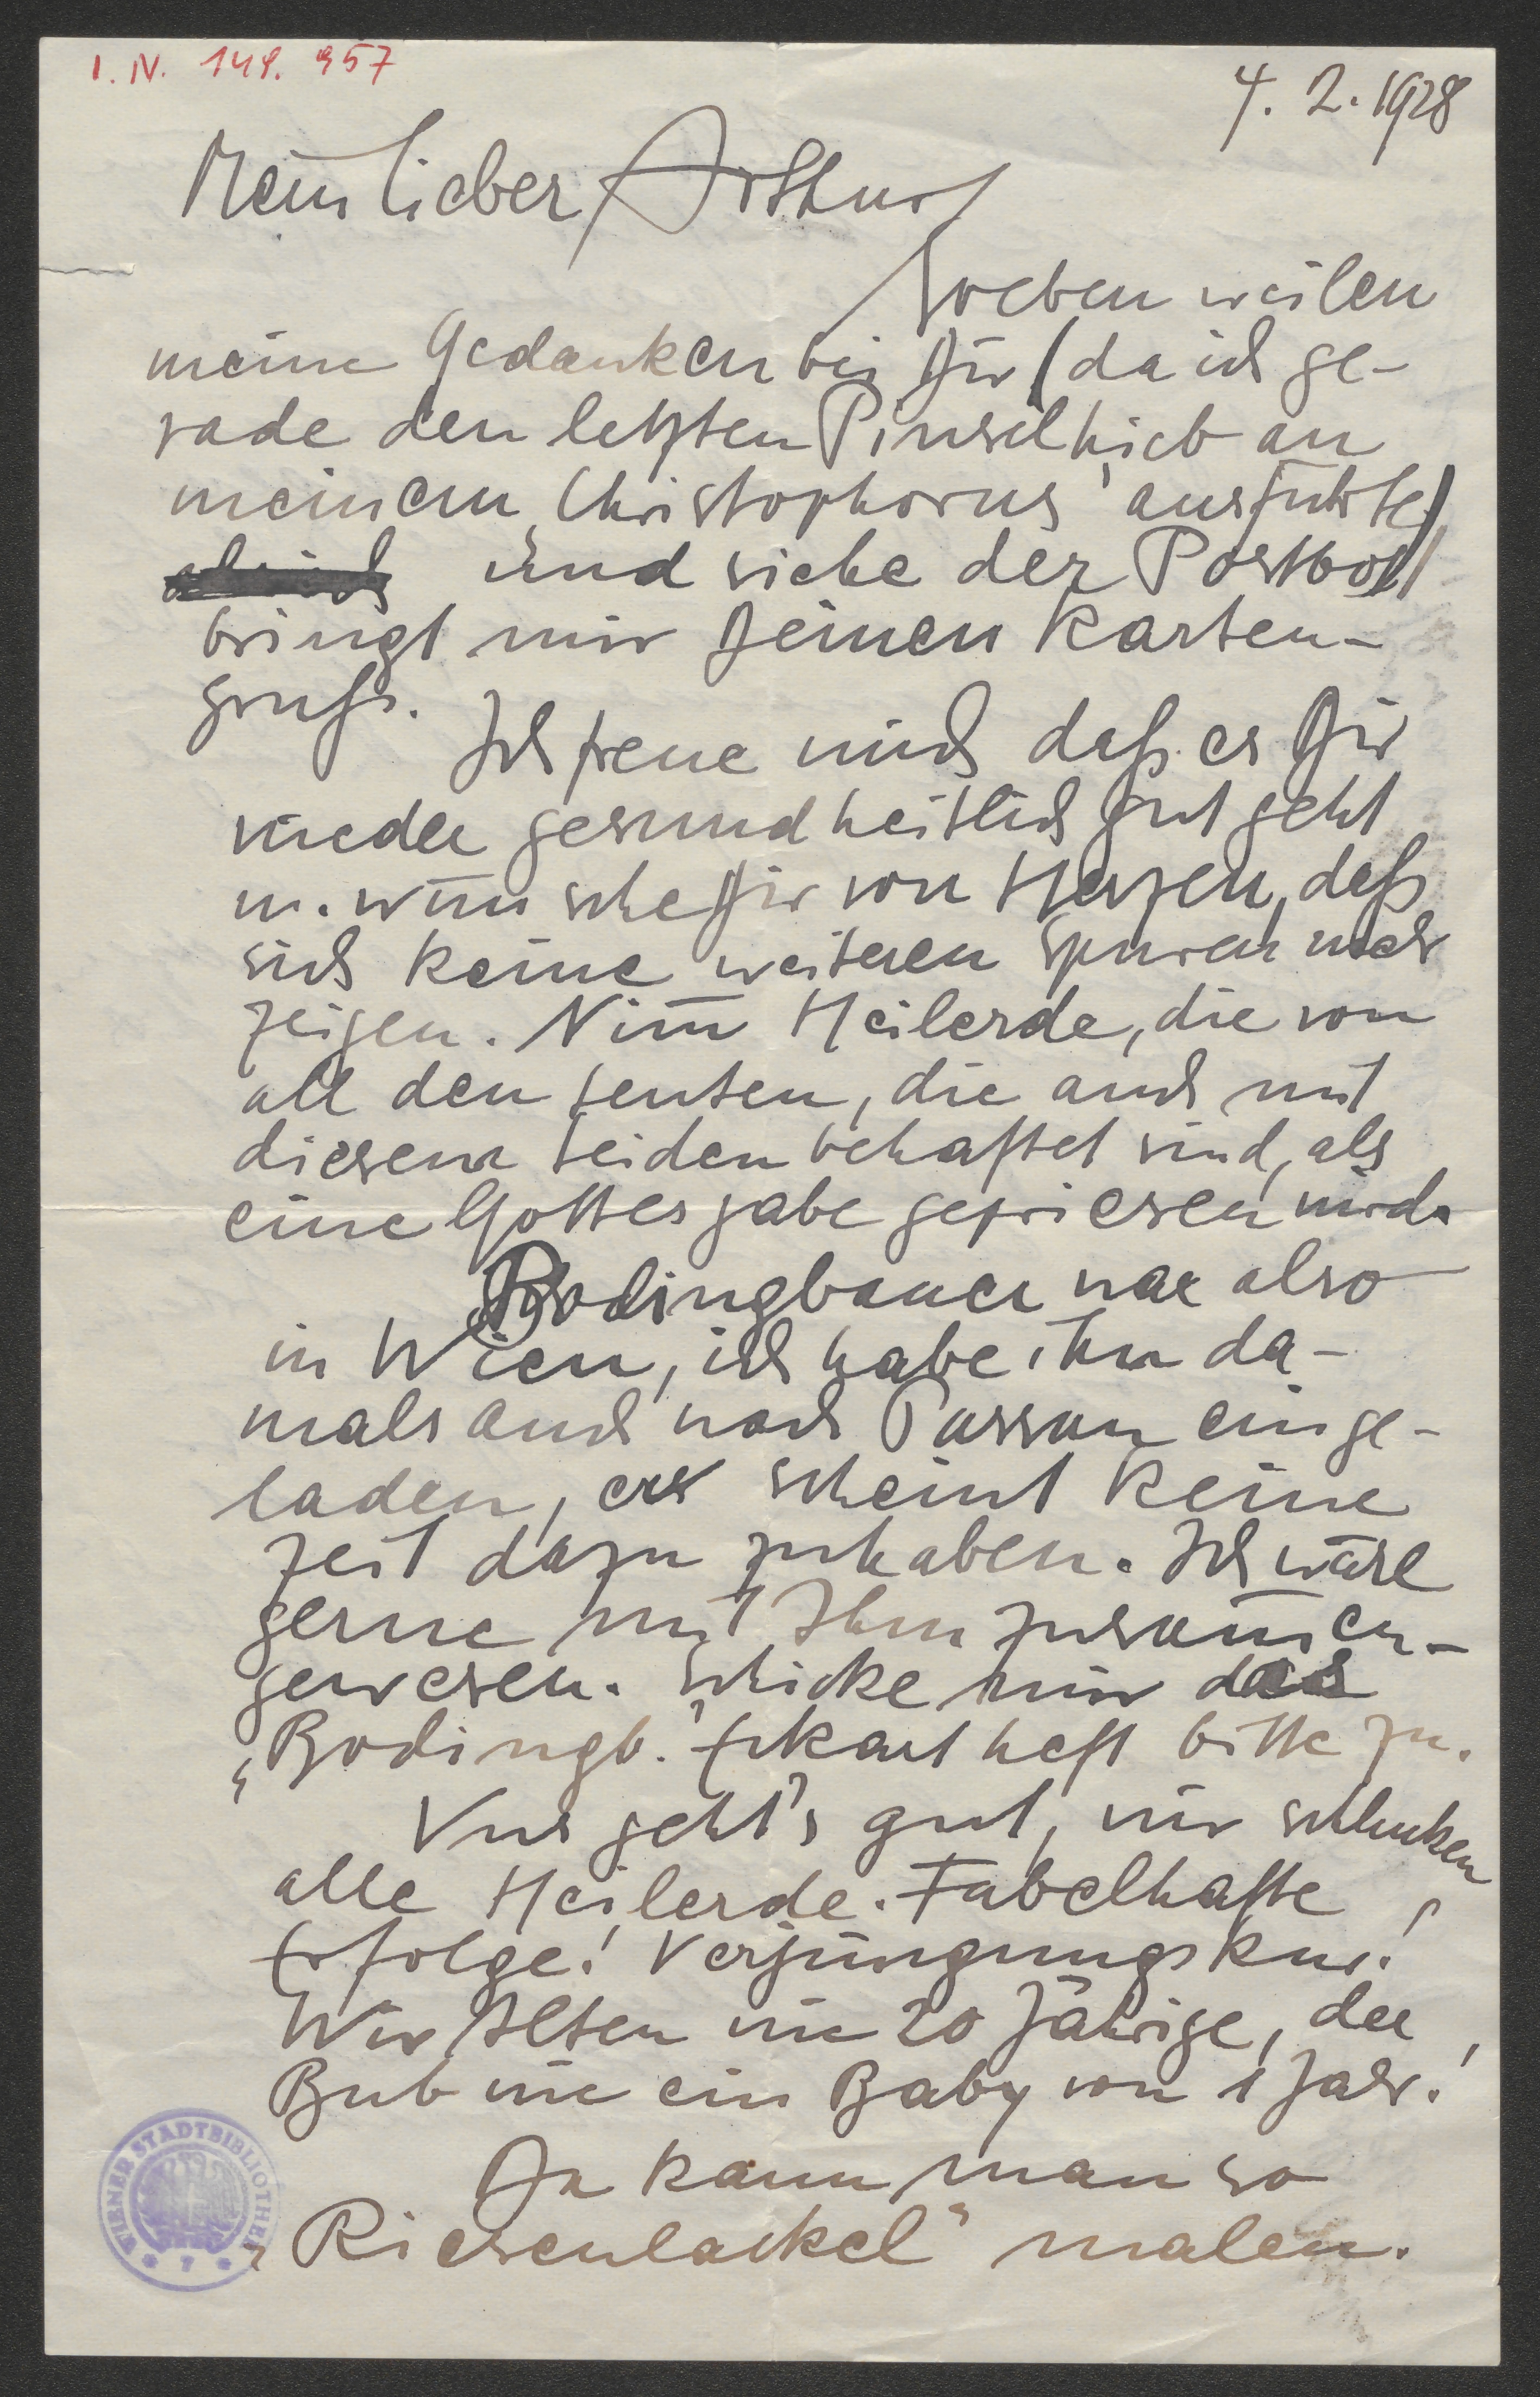 I. N. 149.957
4. 2. 1928
Mein lieber Arthur
Soeben weilen
meine Gedanken bei Dir (da ich ge-
rade den letzten Pinselhieb an
meinem „Christophorus“ ausführte)
und siehe der Postbot
bringt mir Deinen Karten-
gruß.
Ich freue mich daß es Dir
wieder gesundheitlich gut geht
u. wünsche Dir von Herzen, daß
sich keine weiteren Spuren mehr
zeigen. Nim̅ Heilerde, die von
all den Leuten, die auch mit
diesem Leiden behaftet sind, als
eine Gottesgabe gepriesen wird.
Bodingbauer war also
in Wien, ich habe ihn da-
mals auch nach Passau einge-
laden, er scheint keine
Zeit dazu zuhaben. Ich wäre
gerne mit Ihm zusam̅en-
gewesen. Schicke mir das
„Bodingb.“ Eckart heft bitte zu.
Uns geht's gut, wir schlucken
alle Heilerde. Fabelhafte
Erfolge! Verjüngungskur!
Wir Alten wie 20 Jährige, der
Bub wie ein Baby von 1 Jahr!
Da kann man so
„Riesenlackel“ malen.
WIENER STADTBIBLIOTHEK
* 7 *